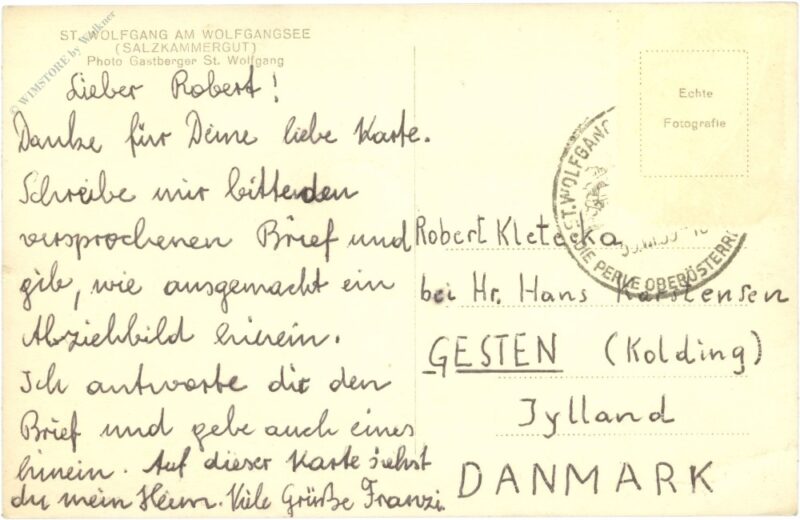 ST. WOLFGANG AM WOLFGANGSEE
(SALZKAMMERGUT)
Photo Gastberger St. Wolfgang
© WIMSTORE by Walkner
Lieber Robert!
Danke für Deine liebe Karte.
Schreibe mir bitte den
versprochenen Brief und
gib, wie ausgemacht ein
Abziehbild hinein.
Ich antworte dir den
Brief und gebe auch eines
hinein. Auf dieser Karte siehst
du mein Heim. Viele Grüße Franzi.
Echte
Fotografie
ST. WOLFGANG
DIE PERLE OBERÖSTERR
Robert Kletecka
bei Hr. Hans Karstensen
GESTEN (Kolding)
Jylland
DANMARK